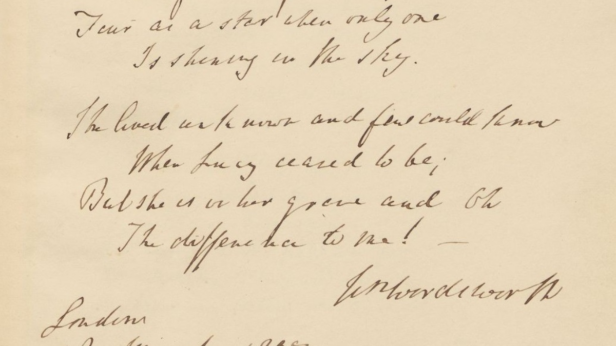 Fair as a star when only one
Is shining in the sky.
She lived unknown and few could know
When Lucy ceased to be;
But she is in her grave and Oh
The difference to me! —
Wm Wordsworth
London